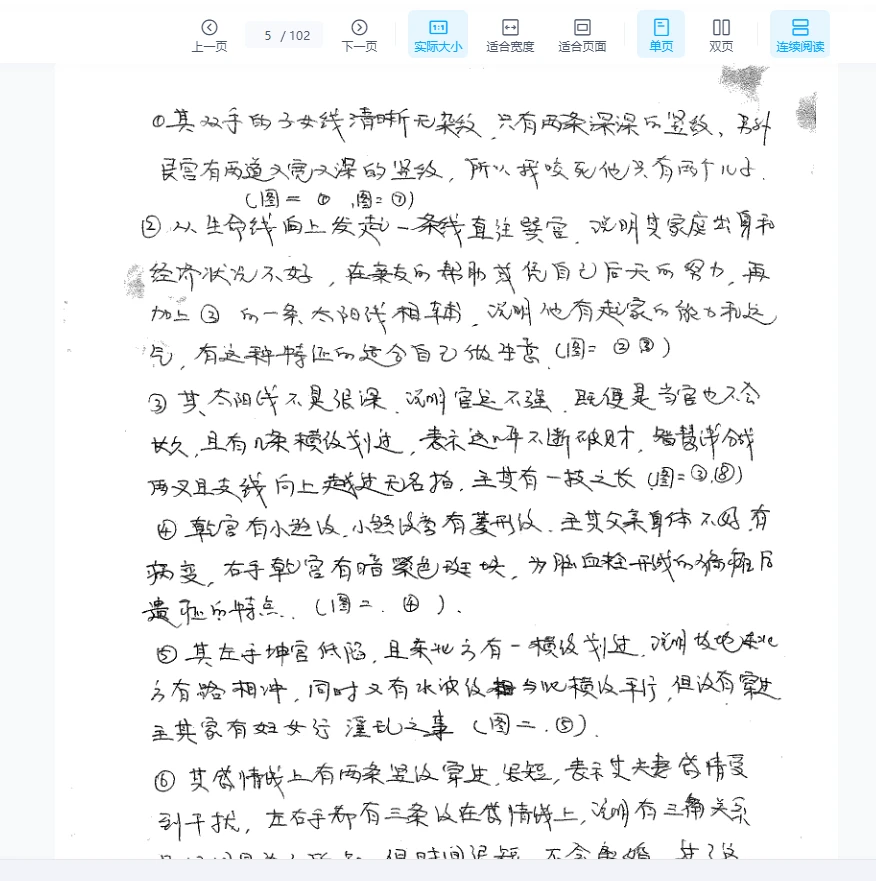 上一页 5 / 102 下一页 实际大小 适合宽度 适合页面 单页 双页 连续阅读
①其双手的子女线清晰无杂纹,只有两条深深的竖纹、另外
艮宫有两道又宽又深的竖纹,所以我咬死他只有两个儿子.
(图二 ①,图二⑦)
②从生命线向上发起一条线直往巽宫,说明其家庭出身和
经济状况不好,在亲友的帮助或凭自己后天的努力,再
加上③的一条太阳线相辅,说明他有起家的能力和运
气,有这种特征的适合自己做生意(图二②③)
③其太阳线不是很深,说明官运不强,既便是当官也不会
长久,且有几条横纹划过,表示这几年不断破财,智慧线分成
两叉且支线向上越过无名指,主其有一技之长(图二③,⑧)
④乾宫有小煞纹,小煞纹旁有菱形纹,主其父亲身体不好,有
病变,右手乾宫有暗紫色斑块,为脑血栓形成的偏瘫后
遗症的特点.(图二.④).
⑤其左手坤宫低陷,且东北方有一横纹划过,说明坟地东北
方有路相冲,同时又有水波纹与此横纹平行,但没有穿过
主其家有妇女行淫乱之事(图二.⑤).
⑥其爱情线上有两条竖纹穿过,很短,表示丈夫妻爱情受
到干扰,左右手都有三条纹在爱情线上,说明有三角关系
但时间很短,不会离婚